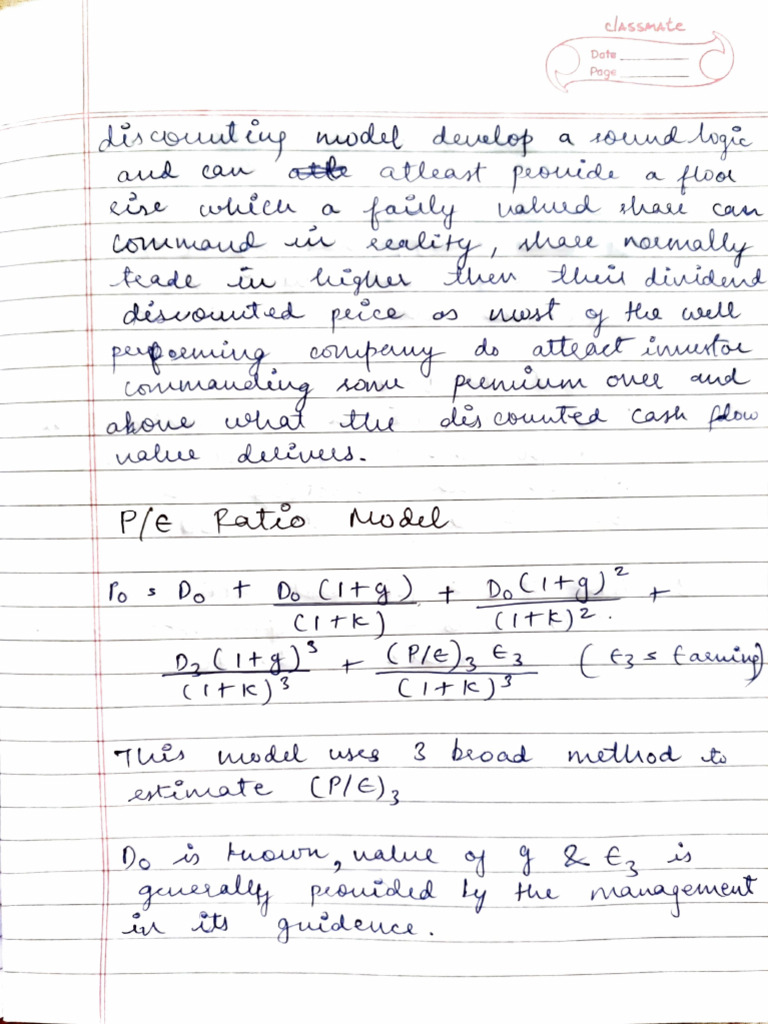 classmate
Date
Page
discounting model develop a sound logic
and can atleast provide a floor
rise which a fairly valued share can
command in reality, share normally
trade in higher then their dividend
discounted price as most of the well
performing company do attract investor
commanding some premium over and
above what the discounted cash flow
value delivers.
P/E Ratio Model
P₀ = D₀ + D₀(1+g)/(1+k) + D₀(1+g)²/(1+k)². +
D₃(1+g)³/(1+k)³ + (P/E)₃ E₃/(1+k)³ (E₃ = Earning)
This model uses 3 broad method to
estimate (P/E)₃
D₀ is known, value of g & E₃ is
generally provided by the management
in its guidence.